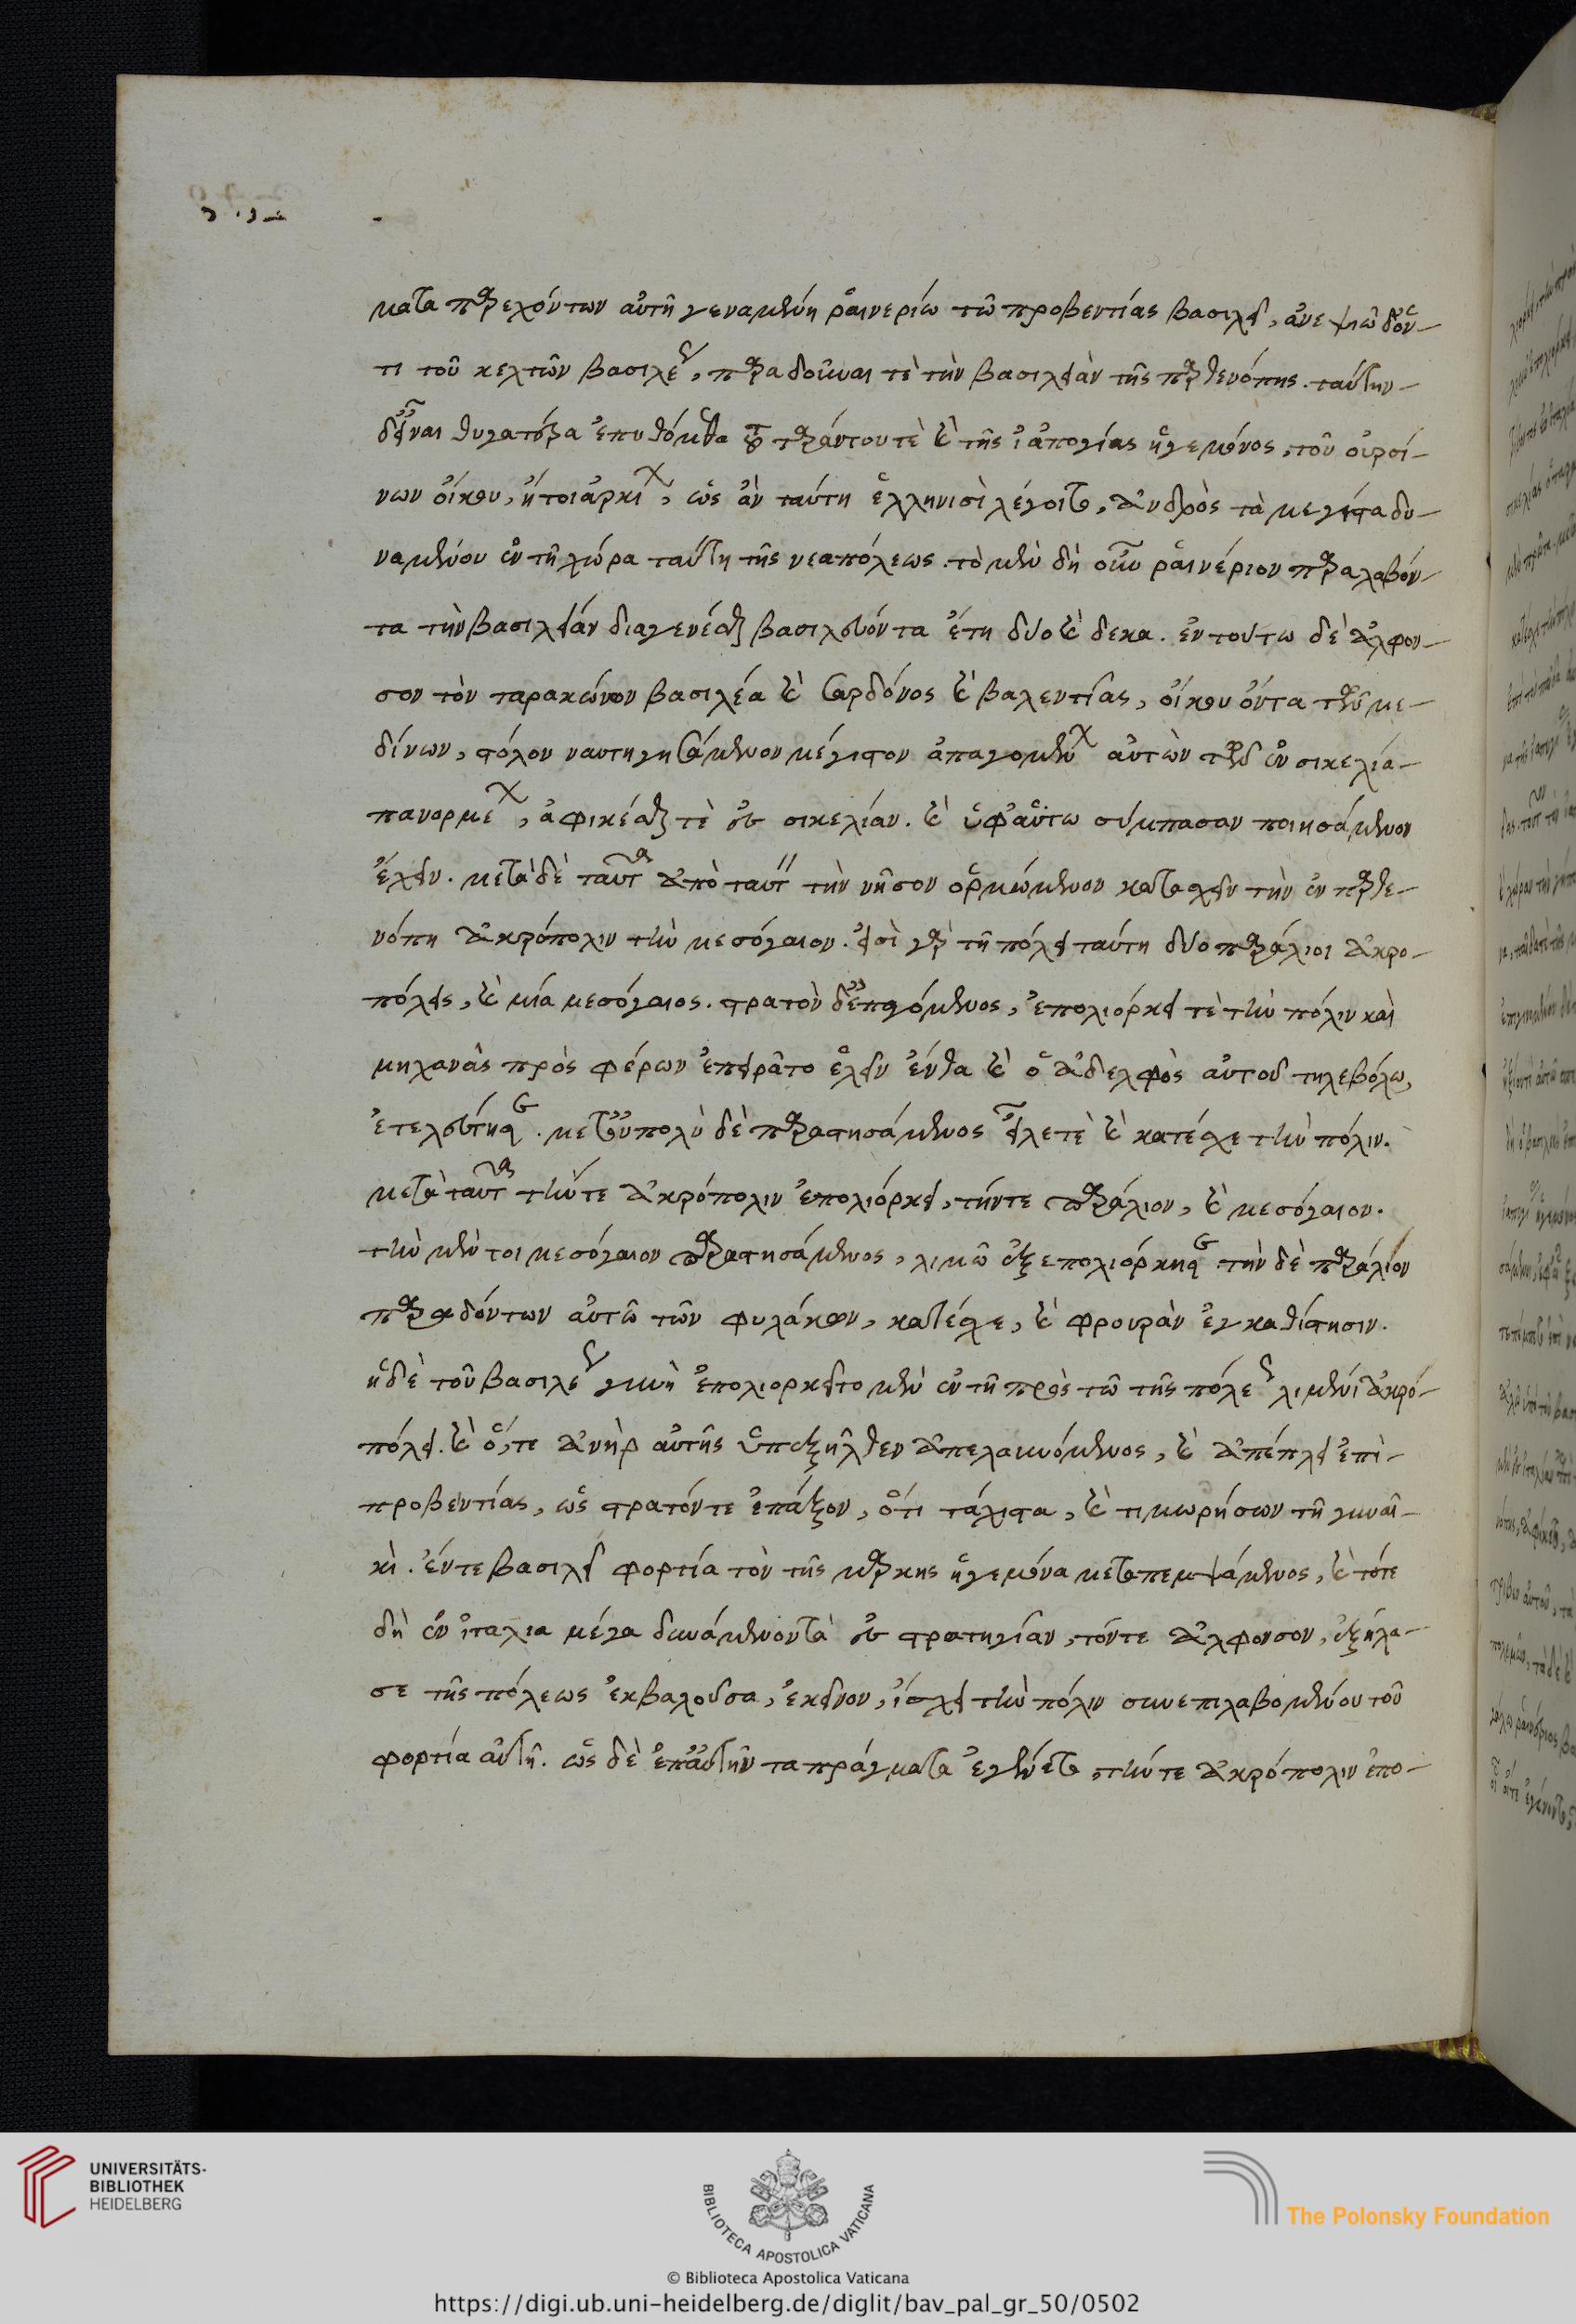 ματα παρεχόντων αὐτῆ γεναμένη ῥαινερίω τῶ προβεντίας βασιλεῖ, ἀνεψιῶ ὄν-
τι τοῦ κελτῶν βασιλέως, παραδοῦναι τὲ τὴν βασιλείαν τῆς παρθενόπης. ταύτην-
δ' εἶναι θυγατέρα ἐπυθόμεθα τοῦ ταράντου τὲ καὶ τῆς ἰαπυγίας ἡγεμόνος, τοῦ οὐρσί-
νων οἴκου, ἤτοι ἀρκίων, ὡς ἂν ταύτη ἑλληνισὶ λέγοιτο, ἀνδρὸς τὰ μέγιστα δυ-
ναμένου ἐν τῆ χώρα ταύτη τῆς νεαπόλεως. τὸ μὲν δὴ οὖν ῥαινέριον παραλαβόν-
τα τὴν βασιλείαν διαγενέσθαι βασιλεύοντα ἔτη δύο καὶ δεκα. ἐν τούτω δὲ ἀλφον-
σον τὸν ταρακώνων βασιλέα καὶ σαρδόνος καὶ βαλεντίας, οἴκου ὄντα τῶν με-
δίνων, στόλον ναυπηγησάμενον μέγιστον ἀπαγομένων αὐτὸν τῶν ἐν σικελία-
πανορμέων, ἀφικέσθαι τὲ ἐς σικελίαν. καὶ ὑφ' αὑτῶ σύμπασαν ποιησάμενον
ἔχειν. μετὰ δὲ ταῦτα ἀπὸ ταύτης τὴν νῆσον ὁρμώμενον κατασχεῖν τὴν ἐν παρθε-
νόπη ἀκρόπολιν τὴν μεσόγαιον. εἰσὶ γὰρ τῆ πόλει ταύτη δύο παράλιοι ἀκρο-
πόλεις, καὶ μία μεσόγαιος. στρατὸν δ' ἐπαγόμενος, ἐπολιόρκει τὲ τὴν πόλιν καὶ
μηχανὰς πρὸς φέρων ἐπειρᾶτο ἑλεῖν ἔνθα καὶ ὁ ἀδελφὸς αὐτοῦ τηλεβόλω,
ἐτελεύτησε. μετ' οὐ πολὺ δὲ παραστησάμενος εἷλε τὲ καὶ κατέσχε τὴν πόλιν.
μετὰ ταῦτα τήν τε ἀκρόπολιν ἐπολιόρκει, τήν τε παράλιον, καὶ μεσόγαιον.
τὴν μέν τοι μεσόγαιον παραστησάμενος, λιμῶ ἐξεπολιόρκησε τὴν δὲ παράλιον
παραδόντων αὐτῶ τῶν φυλάκων, κατέσχε, καὶ φρουρὰν ἐγκαθίστησιν.
ἡ δὲ τοῦ βασιλέως γυνὴ ἐπολιορκεῖτο μὲν ἐν τῆ πρὸς τῶ τῆς πόλεως λιμένι ἀκρό-
πόλει. καὶ ὅ, τε ἀνὴρ αὐτῆς ὑπεξῆλθεν ἀπελαυνόμενος, καὶ ἀπέπλει ἐπὶ-
προβεντίας, ὡς στρατόν τε ἐπάξων, ὅτι τάχιστα, καὶ τιμωρήσων τῆ γυναι-
κὶ. ἥν τε βασιλεῖ φορτία τὸν τῆς μάρκης ἡγεμόνα μεταπεμψάμενος, καὶ τότε
δὴ ἐν ἰταλία μέγα δυνάμενον τὰ ἐς στρατηγίαν, τόν τε ἀλφονσον, ἐξήλα-
σε τῆς πόλεως ἐκβαλοῦσα, ἐκεῖνον, ἴσχει τὴν πόλιν συνεπιλαβομένου τοῦ
φορτία αὐτῆ. ὡς δὲ ἐπ' αὐτὴν τα πράγματα ἐγένετο, τήν τε ἀκρόπολιν ἐπο-
UNIVERSITÄTS-
BIBLIOTHEK
HEIDELBERG
BIBLIOTECA APOSTOLICA VATICANA
© Biblioteca Apostolica Vaticana
The Polonsky Foundation
https://digi.ub.uni-heidelberg.de/diglit/bav_pal_gr_50/0502